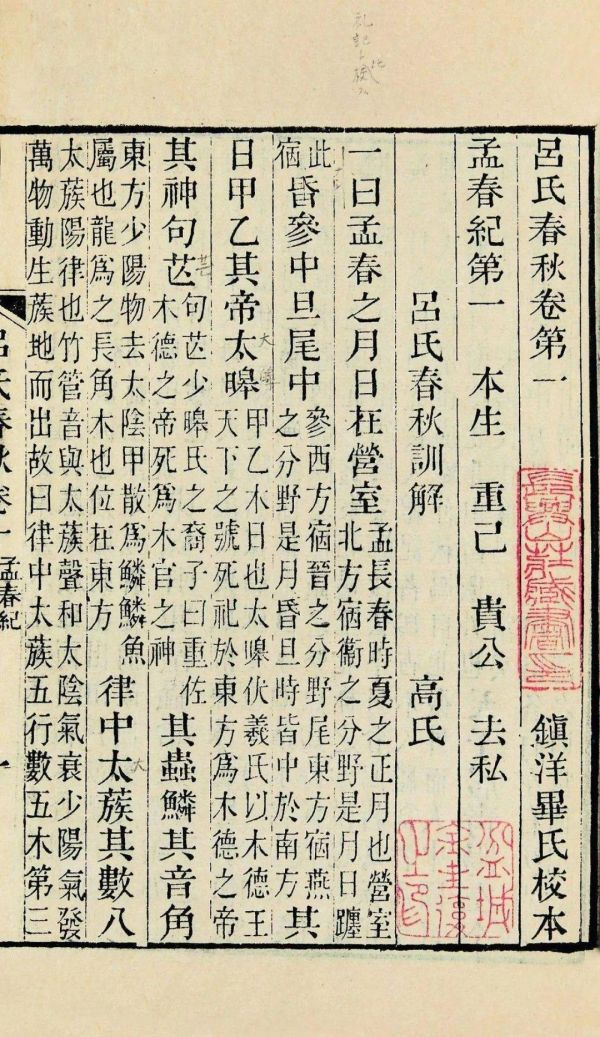 呂氏春秋卷第一 鎮洋畢氏校本
孟春紀第一 本生 重己 貴公 去私
呂氏春秋訓解 高氏
一曰孟春之月日在營室孟長春時夏之正月也營室北方宿衞之分野是月日躔
此宿昏參中旦尾中參西方宿晉之分野尾東方宿燕之分野是月昏旦時皆中於南方其
日甲乙其帝太皞甲乙木日也太皞伏羲氏以木德王天下之號死祀於東方爲木德之帝
其神句芒句芒少皞氏之裔子曰重佐木德之帝死爲木官之神其蟲鱗其音角
東方少陽物去太陰甲散爲鱗鱗魚屬也龍爲之長角木也位在東方律中太蔟其數八
太蔟陽律也竹管音與太蔟聲和太陰氣衰少陽氣發
萬物動生蔟地而出故曰律中太蔟五行數五木第三
呂氏春秋卷一 孟春紀 一